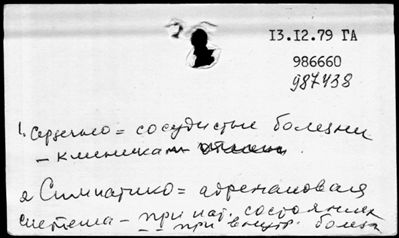 13.12.79 ГА
986660
987438
1. Сердечно = сосудистые болезни
- клиника
2 Симпатико = адреналовая
система - при пат. состояниях
-- при внутр. болезн